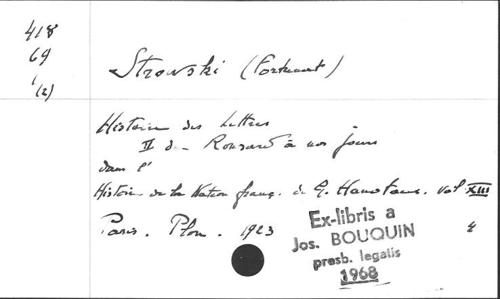 418
69
1
(2)
Strowski (Fortunat)
Histoire des Lettres
II de Ronsard à nos jours
dans l'
Histoire de la Nation franç. de G. Hanotaux. vol XIII
Paris. Plon. 1923
Ex-libris a
Jos. BOUQUIN
presb. legatis
1968